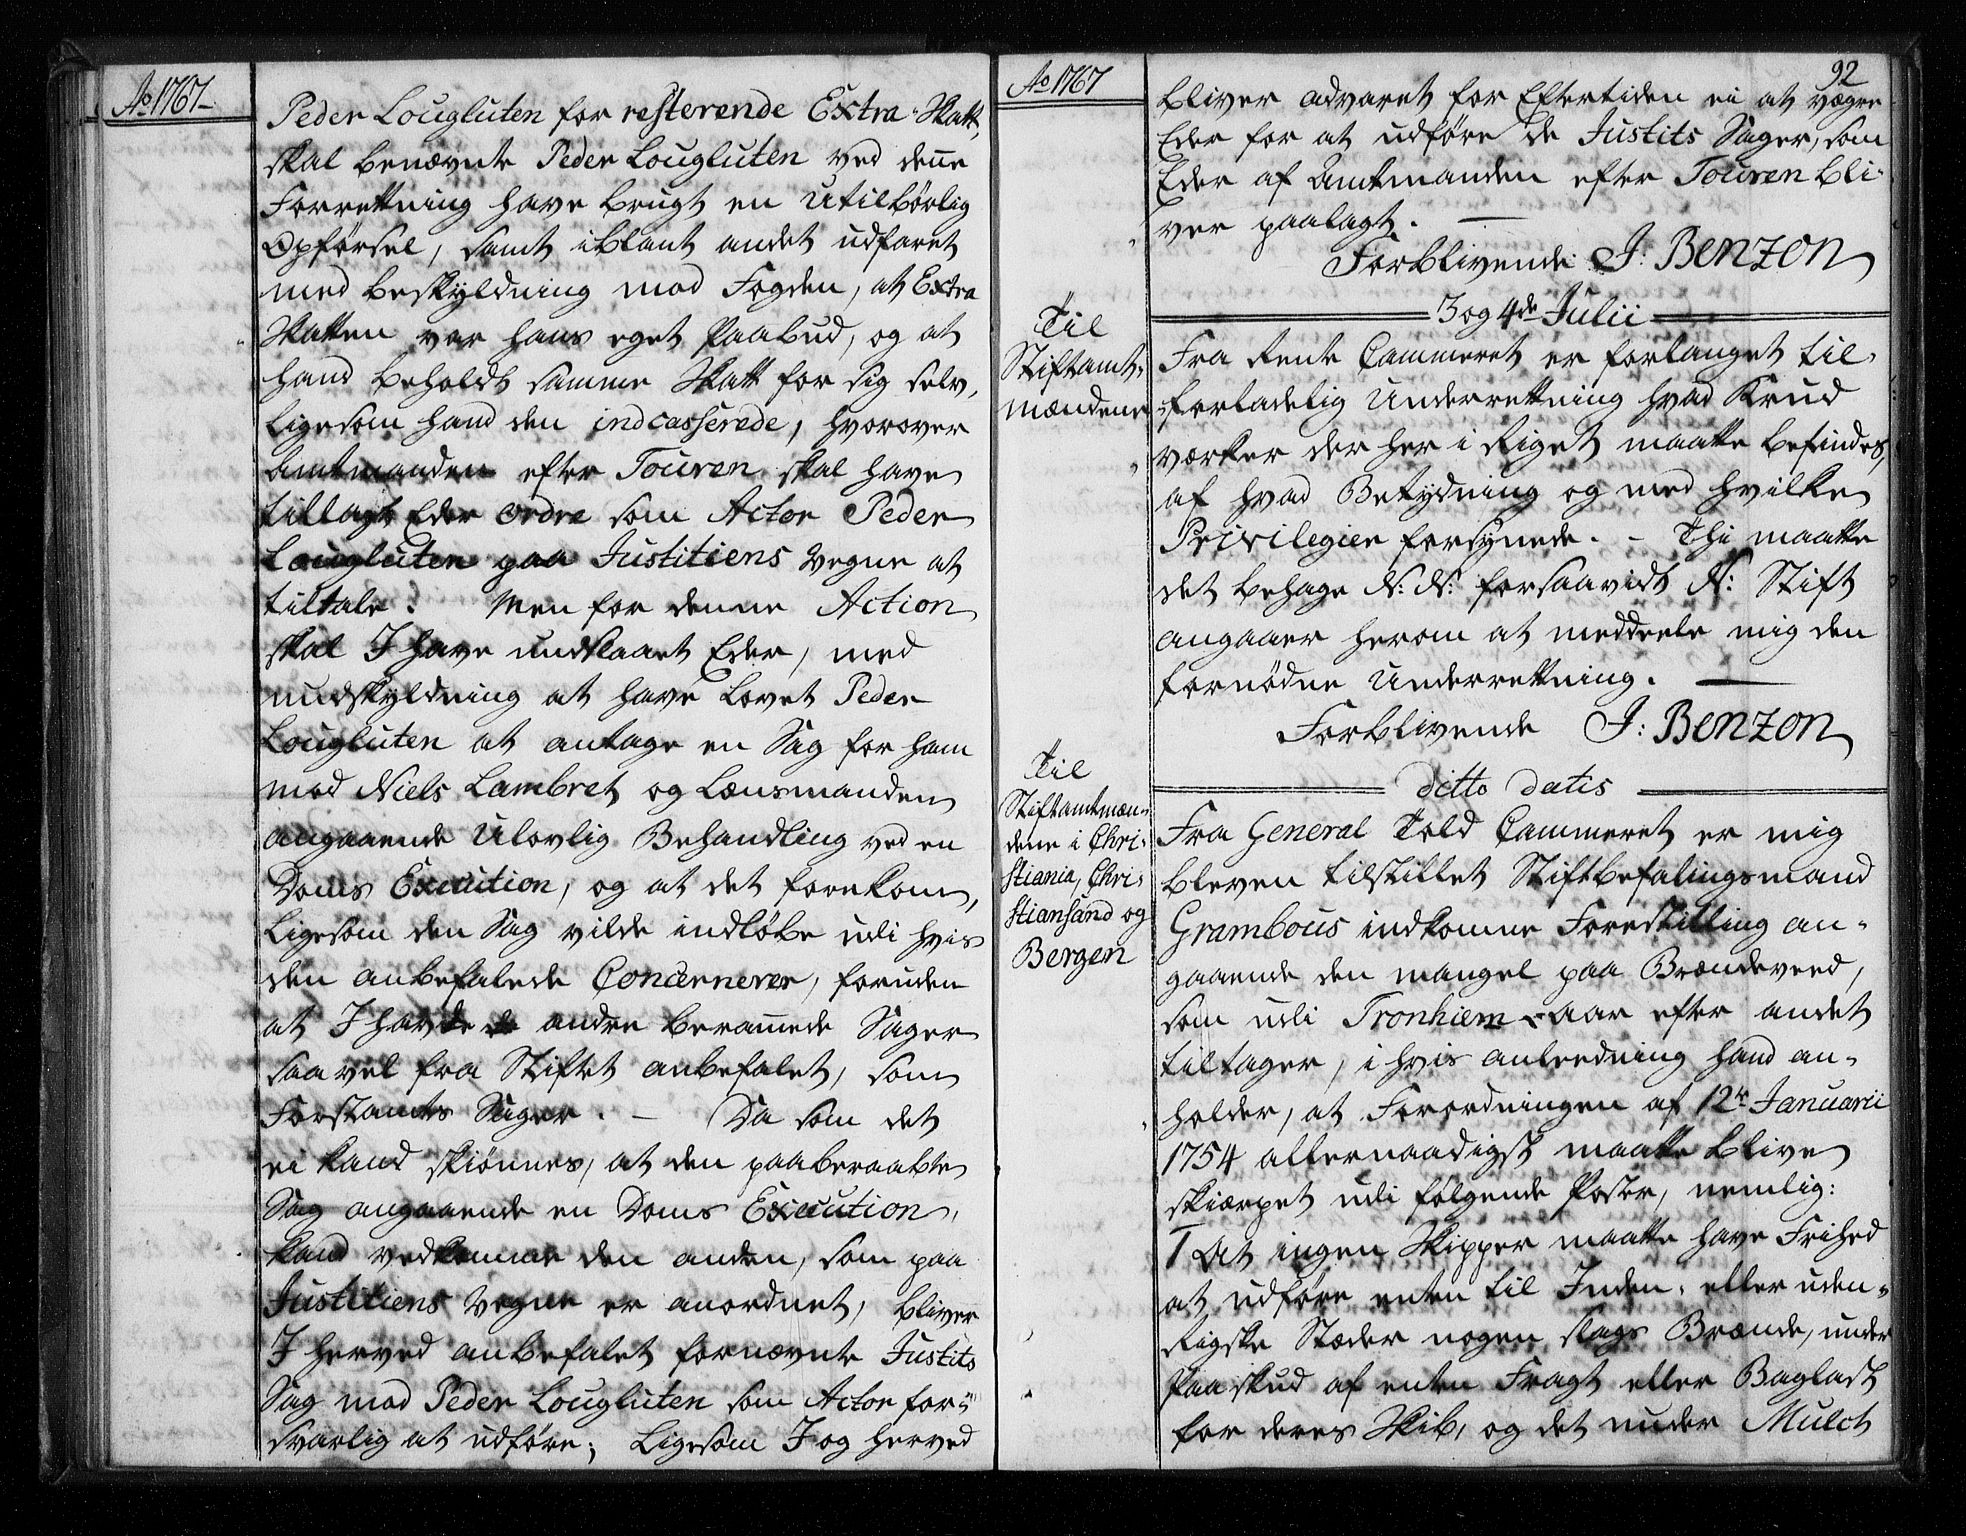 Ao 1767
Peder Lougluten for resterende Extra-Skatt,
skal benævnte Peder Lougluten ved denne
Forrettning have brugt en utilbørlig
Opførsel, samt iblant andet udfaret
med beskyldning mod Fogden, at Extra
Skatten var hans eget Paabud, og at
hand beholdt samme Skatt for sig selv,
ligesom hand den indcasserede, hvorover
Amtmanden efter Touren skal have
tillagt Eder ordre som Actor Peder
Lougluten paa Justitiens Vegne at
tiltale. Men for denne Action
skal I have undslaaet Eder, med
undskyldning at have lovet Peder
Lougluten at antage en Sag for ham
mod Niels Lambret og Lensmanden
angaaende Ulovlig Behandling ved en
Doms Execution, og at det forekom,
ligesom den Sag vilde indløbe udi hvis
den anbefalede Concernerer, foruden
at I havde andre beramede Sager
saavel fra Stiftet anbefalet, som
Forstamts Sager. - Da som det
ei kand skiønnes, at den paaberaabte
Sag angaaende en Doms Execution,
kand vedkomme den anden, som paa
Justitiens Vegne er anordnet, bliver
I herved anbefalet fornævnte Justits
Sag mod Peder Lougluten som Actor for-
svarlig at udføre; ligesom I og herved
Ao 1767
92
bliver advaret for Eftertiden ei at vægre
Eder for at udføre de Justits Sager, som
Eder af Amtmanden efter Touren bli-
ver paalagt.
Forblivende J: Benzon
3 og 4de Julii
Til
Stiftamt-
mændene
Fra Rente Cammeret er forlanget til-
forladelig Underrettning hvad Krud
værker der her i Riget maatte befindes,
af hvad Betydning og med hvilke
Privilegier forsynede. - Thi maatte
det behage N: N: forsaavidt N: Stift
angaaer herom at meddeele mig den
fornødne Underrettning.
Forblivende J: Benzon
ditto datis
Til
Stiftamtmæn-
dene i Chri-
stiania, Chri-
stiansand og
Bergen
Fra General Told Cammeret er mig
bleven tilstillet Stiftbefalingsmand
Grambous indkomne Forestilling an-
gaaende den mangel paa Brændeveed,
som udi Tronhiem aar efter andet
tiltager, i hvis anleedning hand an-
holder, at Forordningen af 12te Januarii
1754 allernaadigst maatte blive
skiærpet udi følgende Poster, nemlig:
1 At ingen Skipper maatte have Frihed
at udføre enten til Inden- eller uden-
Rigske Stæder nogen slags Brænde, under
Paaskud af enten Fragt eller Baglast
for deres Skib, og det under Mulct